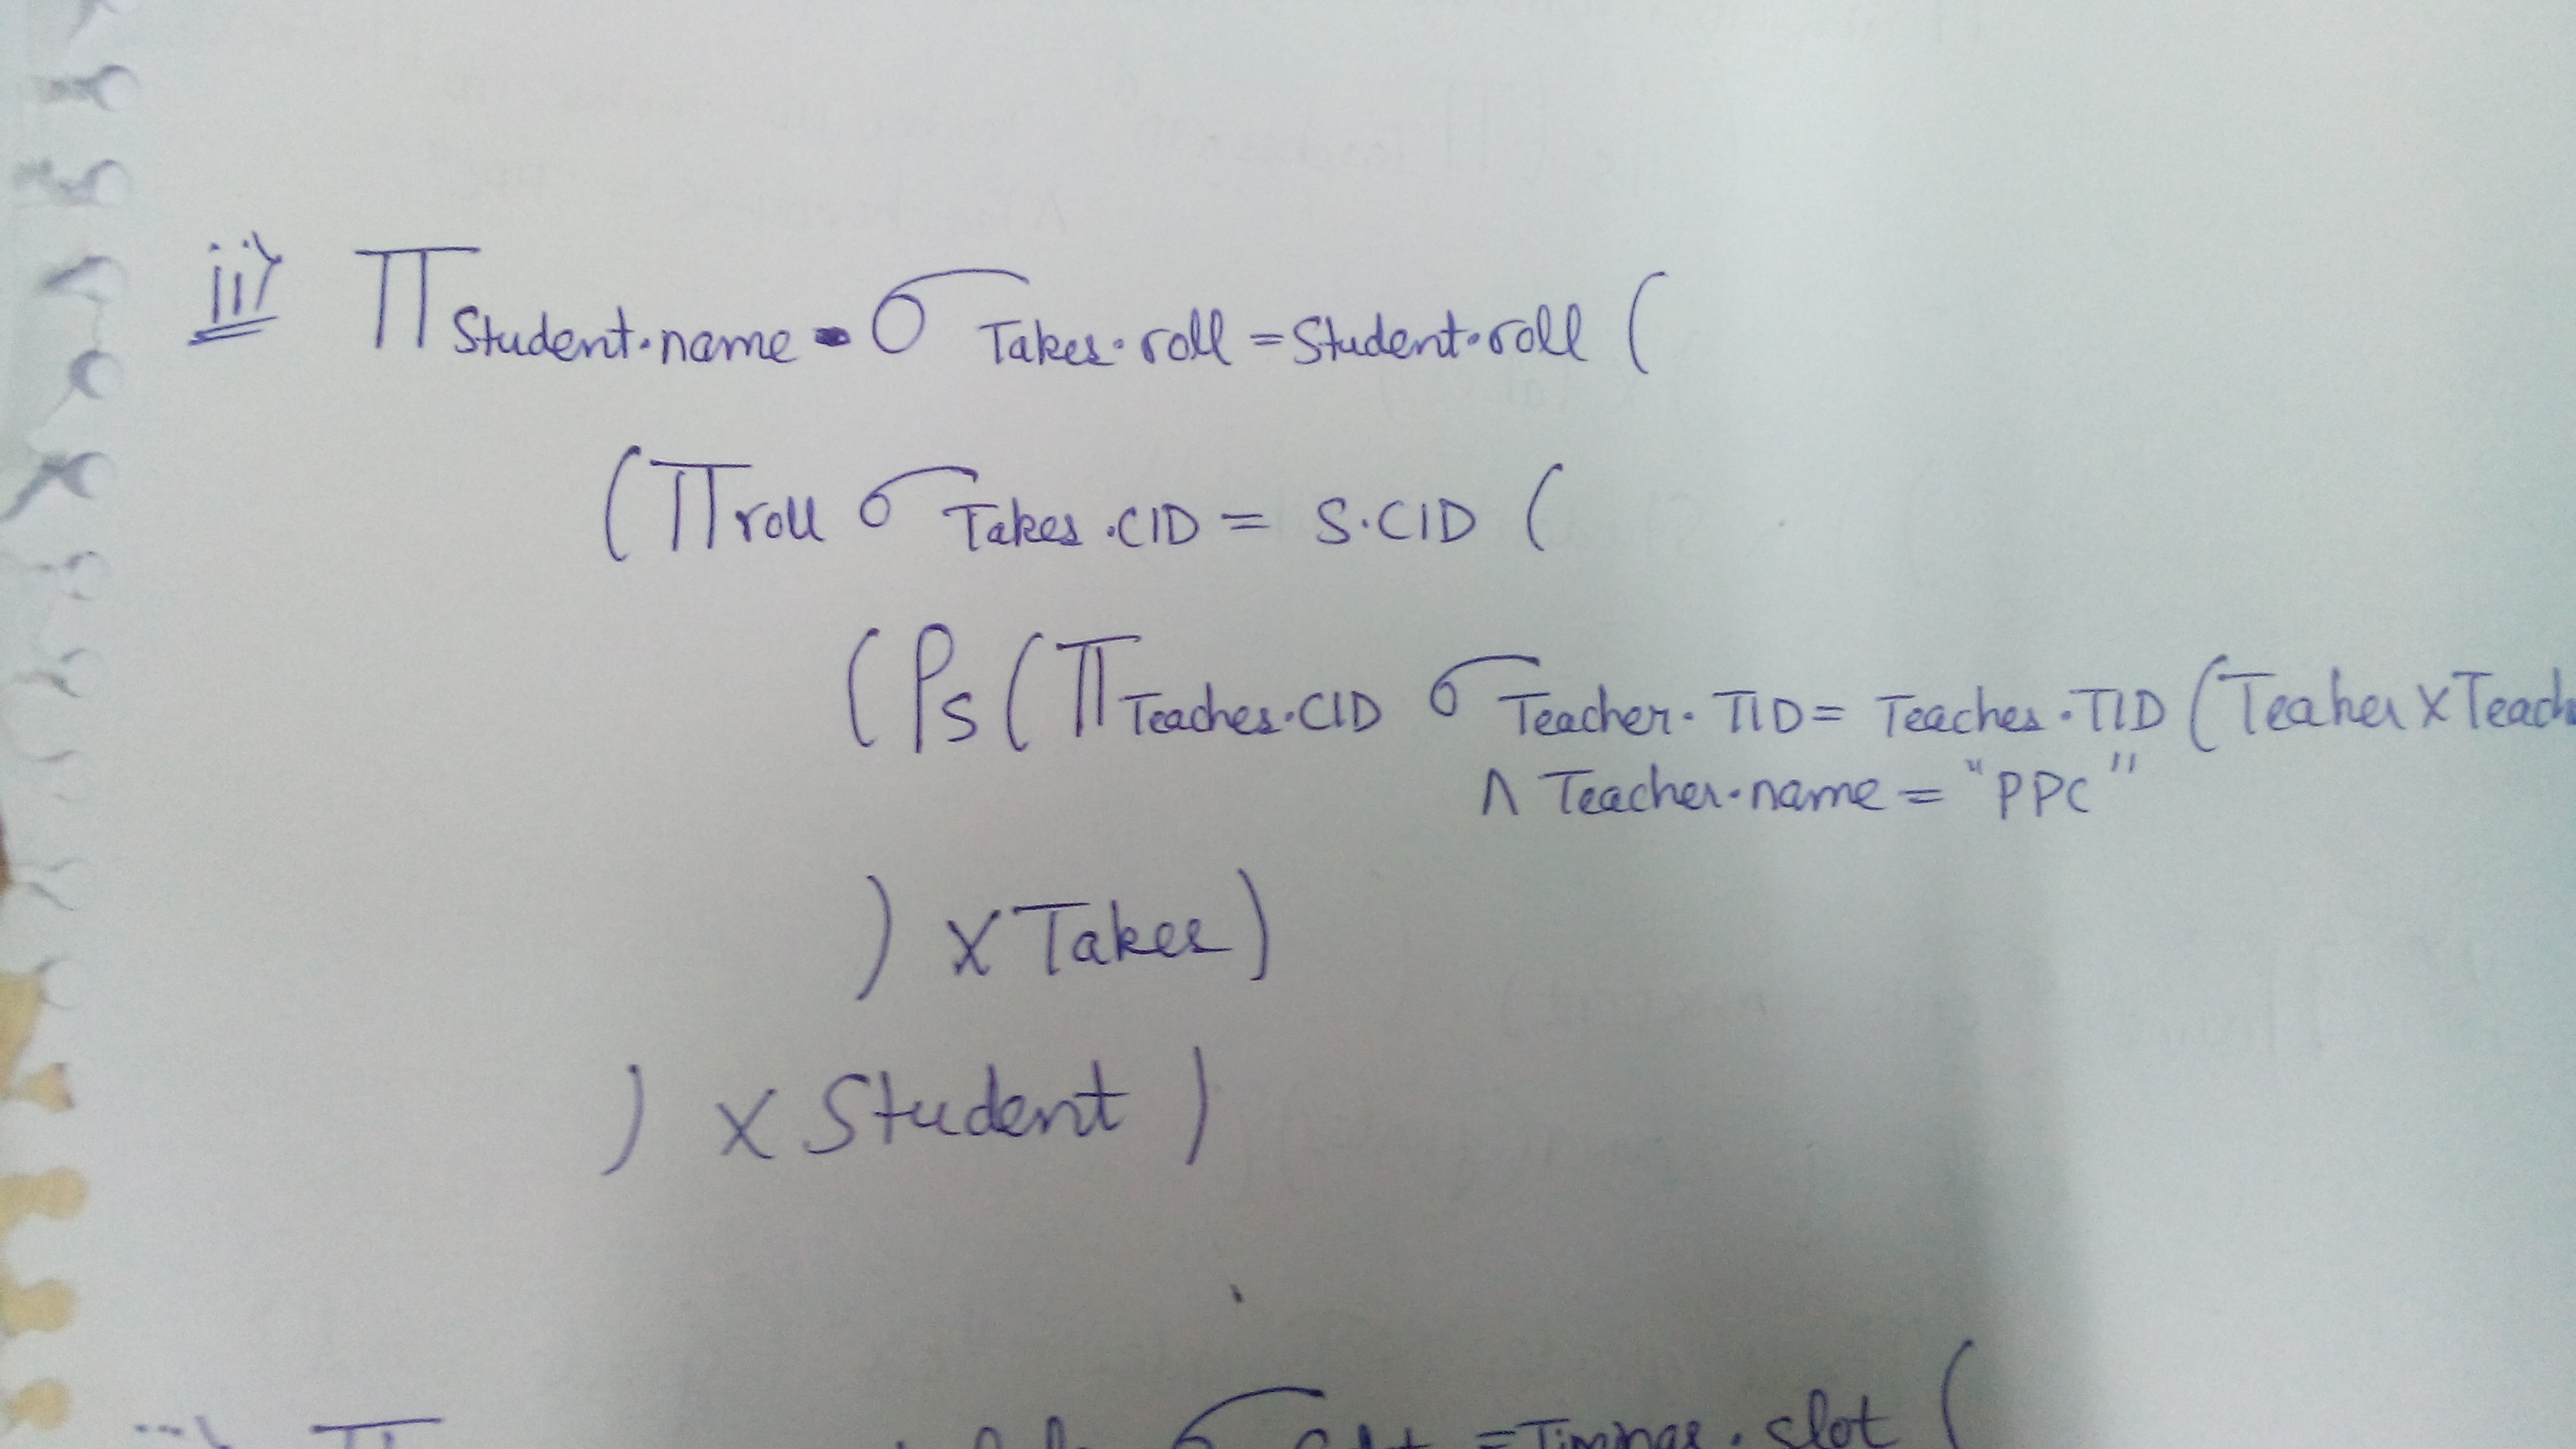 ii) Π Student.name σ Takes.roll = Student.roll (
(Π roll σ Takes.CID = S.CID (
(ρs (Π Teaches.CID σ Teacher.TID = Teaches.TID (Teaher X Teach
∧ Teacher.name = "PPC"
) X Takes)
) X Student )
= Timings.slot (